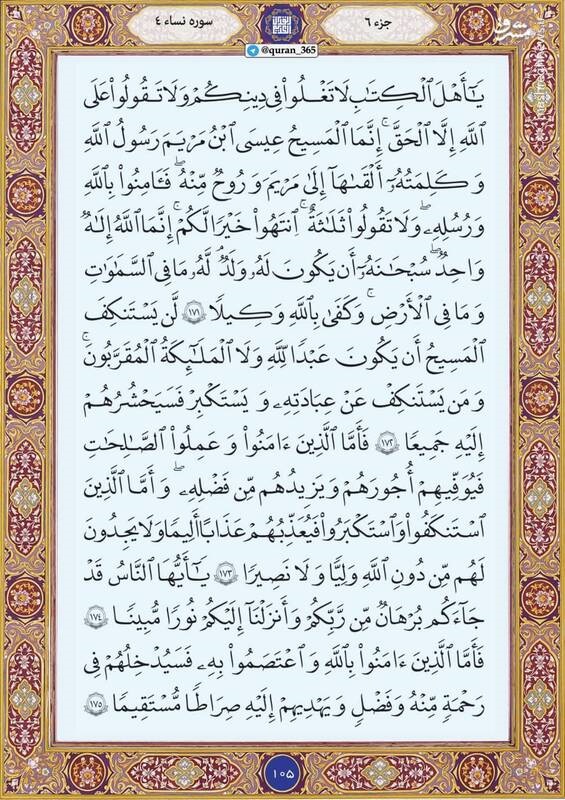 جزء ۶
سوره نساء ۴
@quran_365
يَٰٓأَهۡلَ ٱلۡكِتَٰبِ لَا تَغۡلُواْ فِي دِينِكُمۡ وَلَا تَقُولُواْ عَلَى
ٱللَّهِ إِلَّا ٱلۡحَقَّۚ إِنَّمَا ٱلۡمَسِيحُ عِيسَى ٱبۡنُ مَرۡيَمَ رَسُولُ ٱللَّهِ
وَكَلِمَتُهُۥٓ أَلۡقَىٰهَآ إِلَىٰ مَرۡيَمَ وَرُوحٞ مِّنۡهُۖ فَـَٔامِنُواْ بِٱللَّهِ
وَرُسُلِهِۦۖ وَلَا تَقُولُواْ ثَلَٰثَةٌۚ ٱنتَهُواْ خَيۡرٗا لَّكُمۡۚ إِنَّمَا ٱللَّهُ إِلَٰهٞ
وَٰحِدٞۖ سُبۡحَٰنَهُۥٓ أَن يَكُونَ لَهُۥ وَلَدٞۘ لَّهُۥ مَا فِي ٱلسَّمَٰوَٰتِ
وَمَا فِي ٱلۡأَرۡضِۗ وَكَفَىٰ بِٱللَّهِ وَكِيلٗا ١٧١ لَّن يَسۡتَنكِفَ
ٱلۡمَسِيحُ أَن يَكُونَ عَبۡدٗا لِّلَّهِ وَلَا ٱلۡمَلَٰٓئِكَةُ ٱلۡمُقَرَّبُونَۚ
وَمَن يَسۡتَنكِفۡ عَنۡ عِبَادَتِهِۦ وَيَسۡتَكۡبِرۡ فَسَيَحۡشُرُهُمۡ
إِلَيۡهِ جَمِيعٗا ١٧٢ فَأَمَّا ٱلَّذِينَ ءَامَنُواْ وَعَمِلُواْ ٱلصَّٰلِحَٰتِ
فَيُوَفِّيهِمۡ أُجُورَهُمۡ وَيَزِيدُهُم مِّن فَضۡلِهِۦۖ وَأَمَّا ٱلَّذِينَ
ٱسۡتَنكَفُواْ وَٱسۡتَكۡبَرُواْ فَيُعَذِّبُهُمۡ عَذَابًا أَلِيمٗا وَلَا يَجِدُونَ
لَهُم مِّن دُونِ ٱللَّهِ وَلِيّٗا وَلَا نَصِيرٗا ١٧٣ يَٰٓأَيُّهَا ٱلنَّاسُ قَدۡ
جَآءَكُم بُرۡهَٰنٞ مِّن رَّبِّكُمۡ وَأَنزَلۡنَآ إِلَيۡكُمۡ نُورٗا مُّبِينٗا ١٧٤
فَأَمَّا ٱلَّذِينَ ءَامَنُواْ بِٱللَّهِ وَٱعۡتَصَمُواْ بِهِۦ فَسَيُدۡخِلُهُمۡ فِي
رَحۡمَةٖ مِّنۡهُ وَفَضۡلٖ وَيَهۡدِيهِمۡ إِلَيۡهِ صِرَٰطٗا مُّسۡتَقِيمٗا ١٧٥
۱۰۵